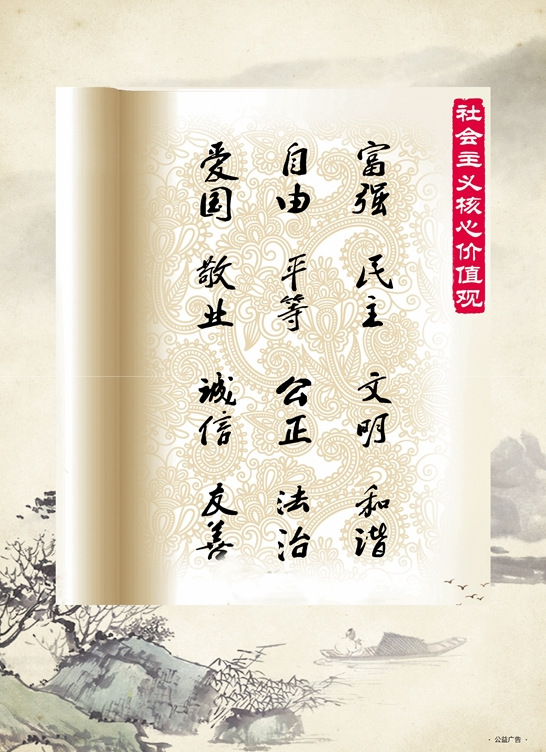 社会主义核心价值观
富强 民主 文明 和谐
自由 平等 公正 法治
爱国 敬业 诚信 友善
· 公益广告 ·